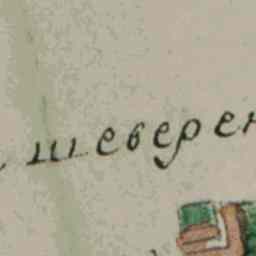 шеверен